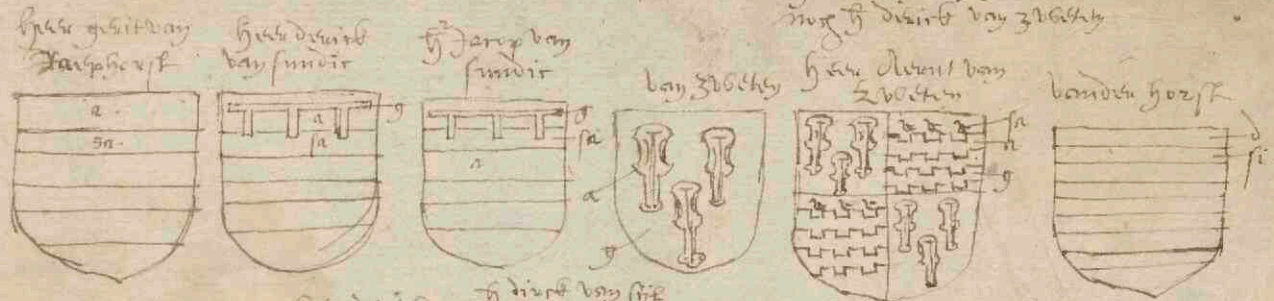 nogh h dirick van zweten
heer gerit van
Raephorst
heer derick
van sundic
h Jacop van
sundic
van zweten
heer Aernt van
zweten
vander horst
a
sa
g
a
sa
g
sa
a
a
g
sa
a
g
h dirck van